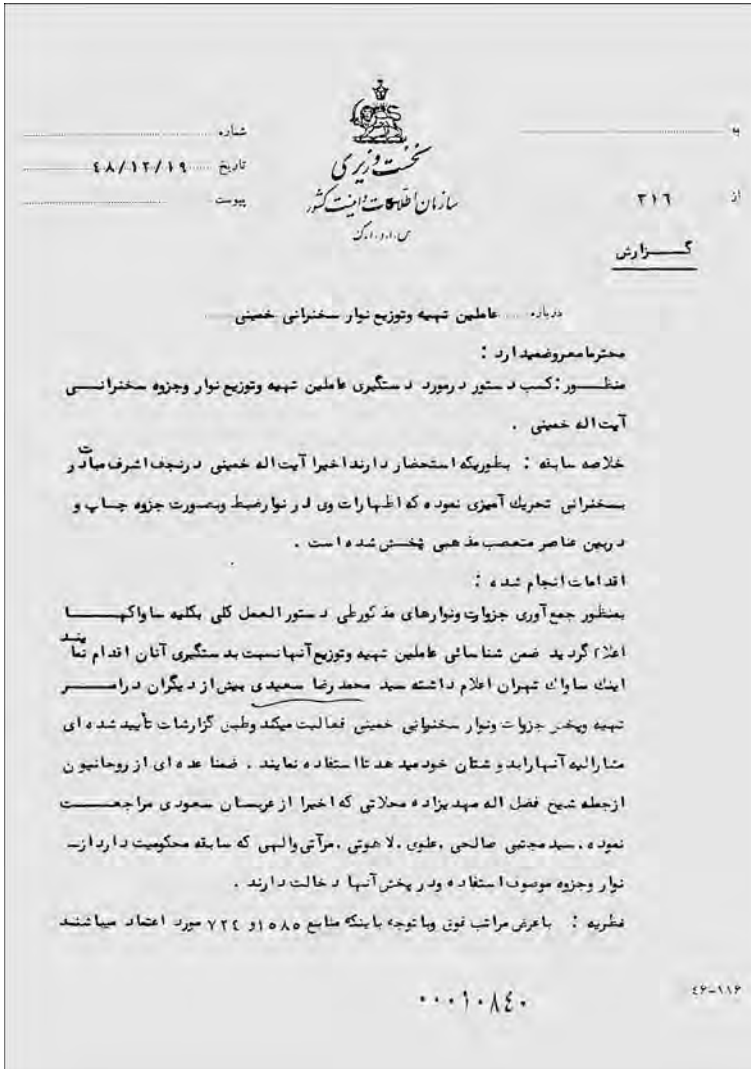 به
شماره
تاریخ ۴۸/۱۲/۱۹
پیوست
نخست وزیری
سازمان اطلاعات و امنیت کشور
س.ا.و.ا.ک
از ۳۱۶
گـــزارش
درباره عاملین تهیه وتوزیع نوار سخنرانی خمینی
محترما معروضمیدارد :
منظـــور : کسب دستور درمورد دستگیری عاملین تهیه وتوزیع نوار وجزوه سخنرانـــی
آیت اله خمینی .
خلاصه سابقه : بطوریکه استحضار دارند اخیرا آیت اله خمینی درنجف اشرف مبادرت و
بسخنرانی تحریک آمیزی نموده که اظهارات وی در نوار ضبط وبصورت جزوه چـاپ و
دربین عناصر متعصب مذهبی پخـش شده است .
اقدامات انجام شده :
بمنظور جمع آوری جزوات ونوارهای مذکور طی دستورالعمل کلی بکلیه ساواکهـــا
اعلام گردید ضمن شناسائی عاملین تهیه وتوزیع آنها نسبت بدستگیری آنان اقدام نمایند
اینک ساواک تهران اعلام داشته سید محمدرضا سعیدی بیش از دیگران درامـــر
تهیه وپخش جزوات ونوار سخنرانی خمینی فعالیت میکند وطبق گزارشات تأیید شده ای
مشارالیه آنها رابدوستان خود میدهد تا استفاده نمایند . ضمنا عده ای از روحانیون
ازجمله شیخ فضل اله مهدیزاده محلاتی که اخیرا از عربستان سعودی مراجعـــت
نموده ، سید مجتبی صالحی ، علوی ، لاهوتی ، مرآتی والهی که سابقه محکومیت دارد ازـ
نوار وجزوه موصوف استفاده ودر پخش آنها دخالت دارند .
نظریه : باعرض مراتب فوق وبا توجه باینکه منابع ۱۵۸۵ و ۷۲۴ مورد اعتماد میباشند
۴۶-۱۱۶
۰۰۰۱۰۸۴۰